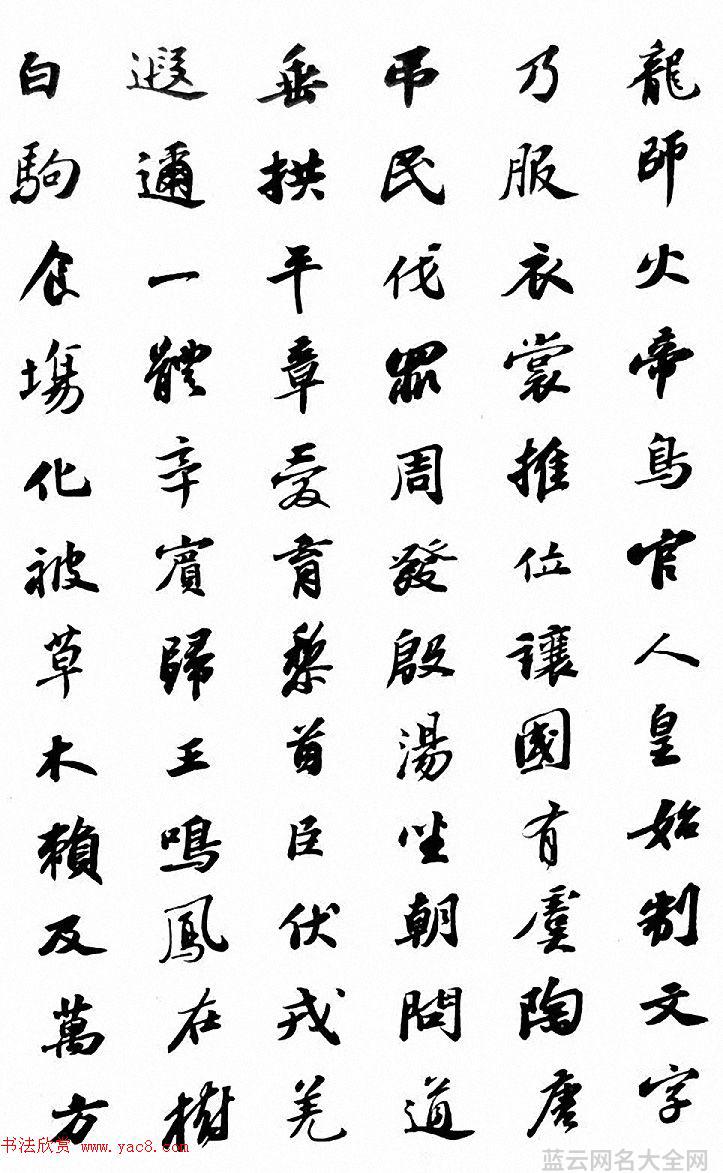 龍師火帝鳥官人皇始制文字
乃服衣裳推位讓國有虞陶唐
弔民伐罪周發殷湯坐朝問道
垂拱平章愛育黎首臣伏戎羌
遐邇一體率賓歸王鳴鳳在樹
白駒食場化被草木賴及萬方
书法欣赏 www.yac8.com
蓝云网名大全网